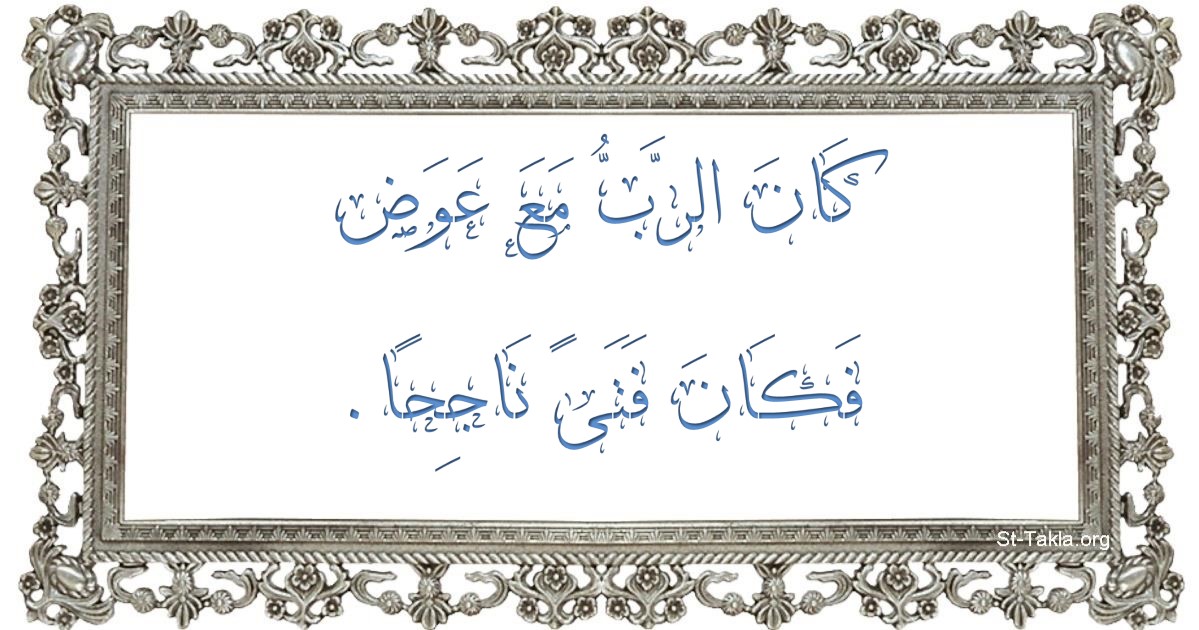 كَانَ الرَّبُّ مَعَ عَوَض
فَكَانَ فَتَىً نَاجِحًا .
St-Takla.org